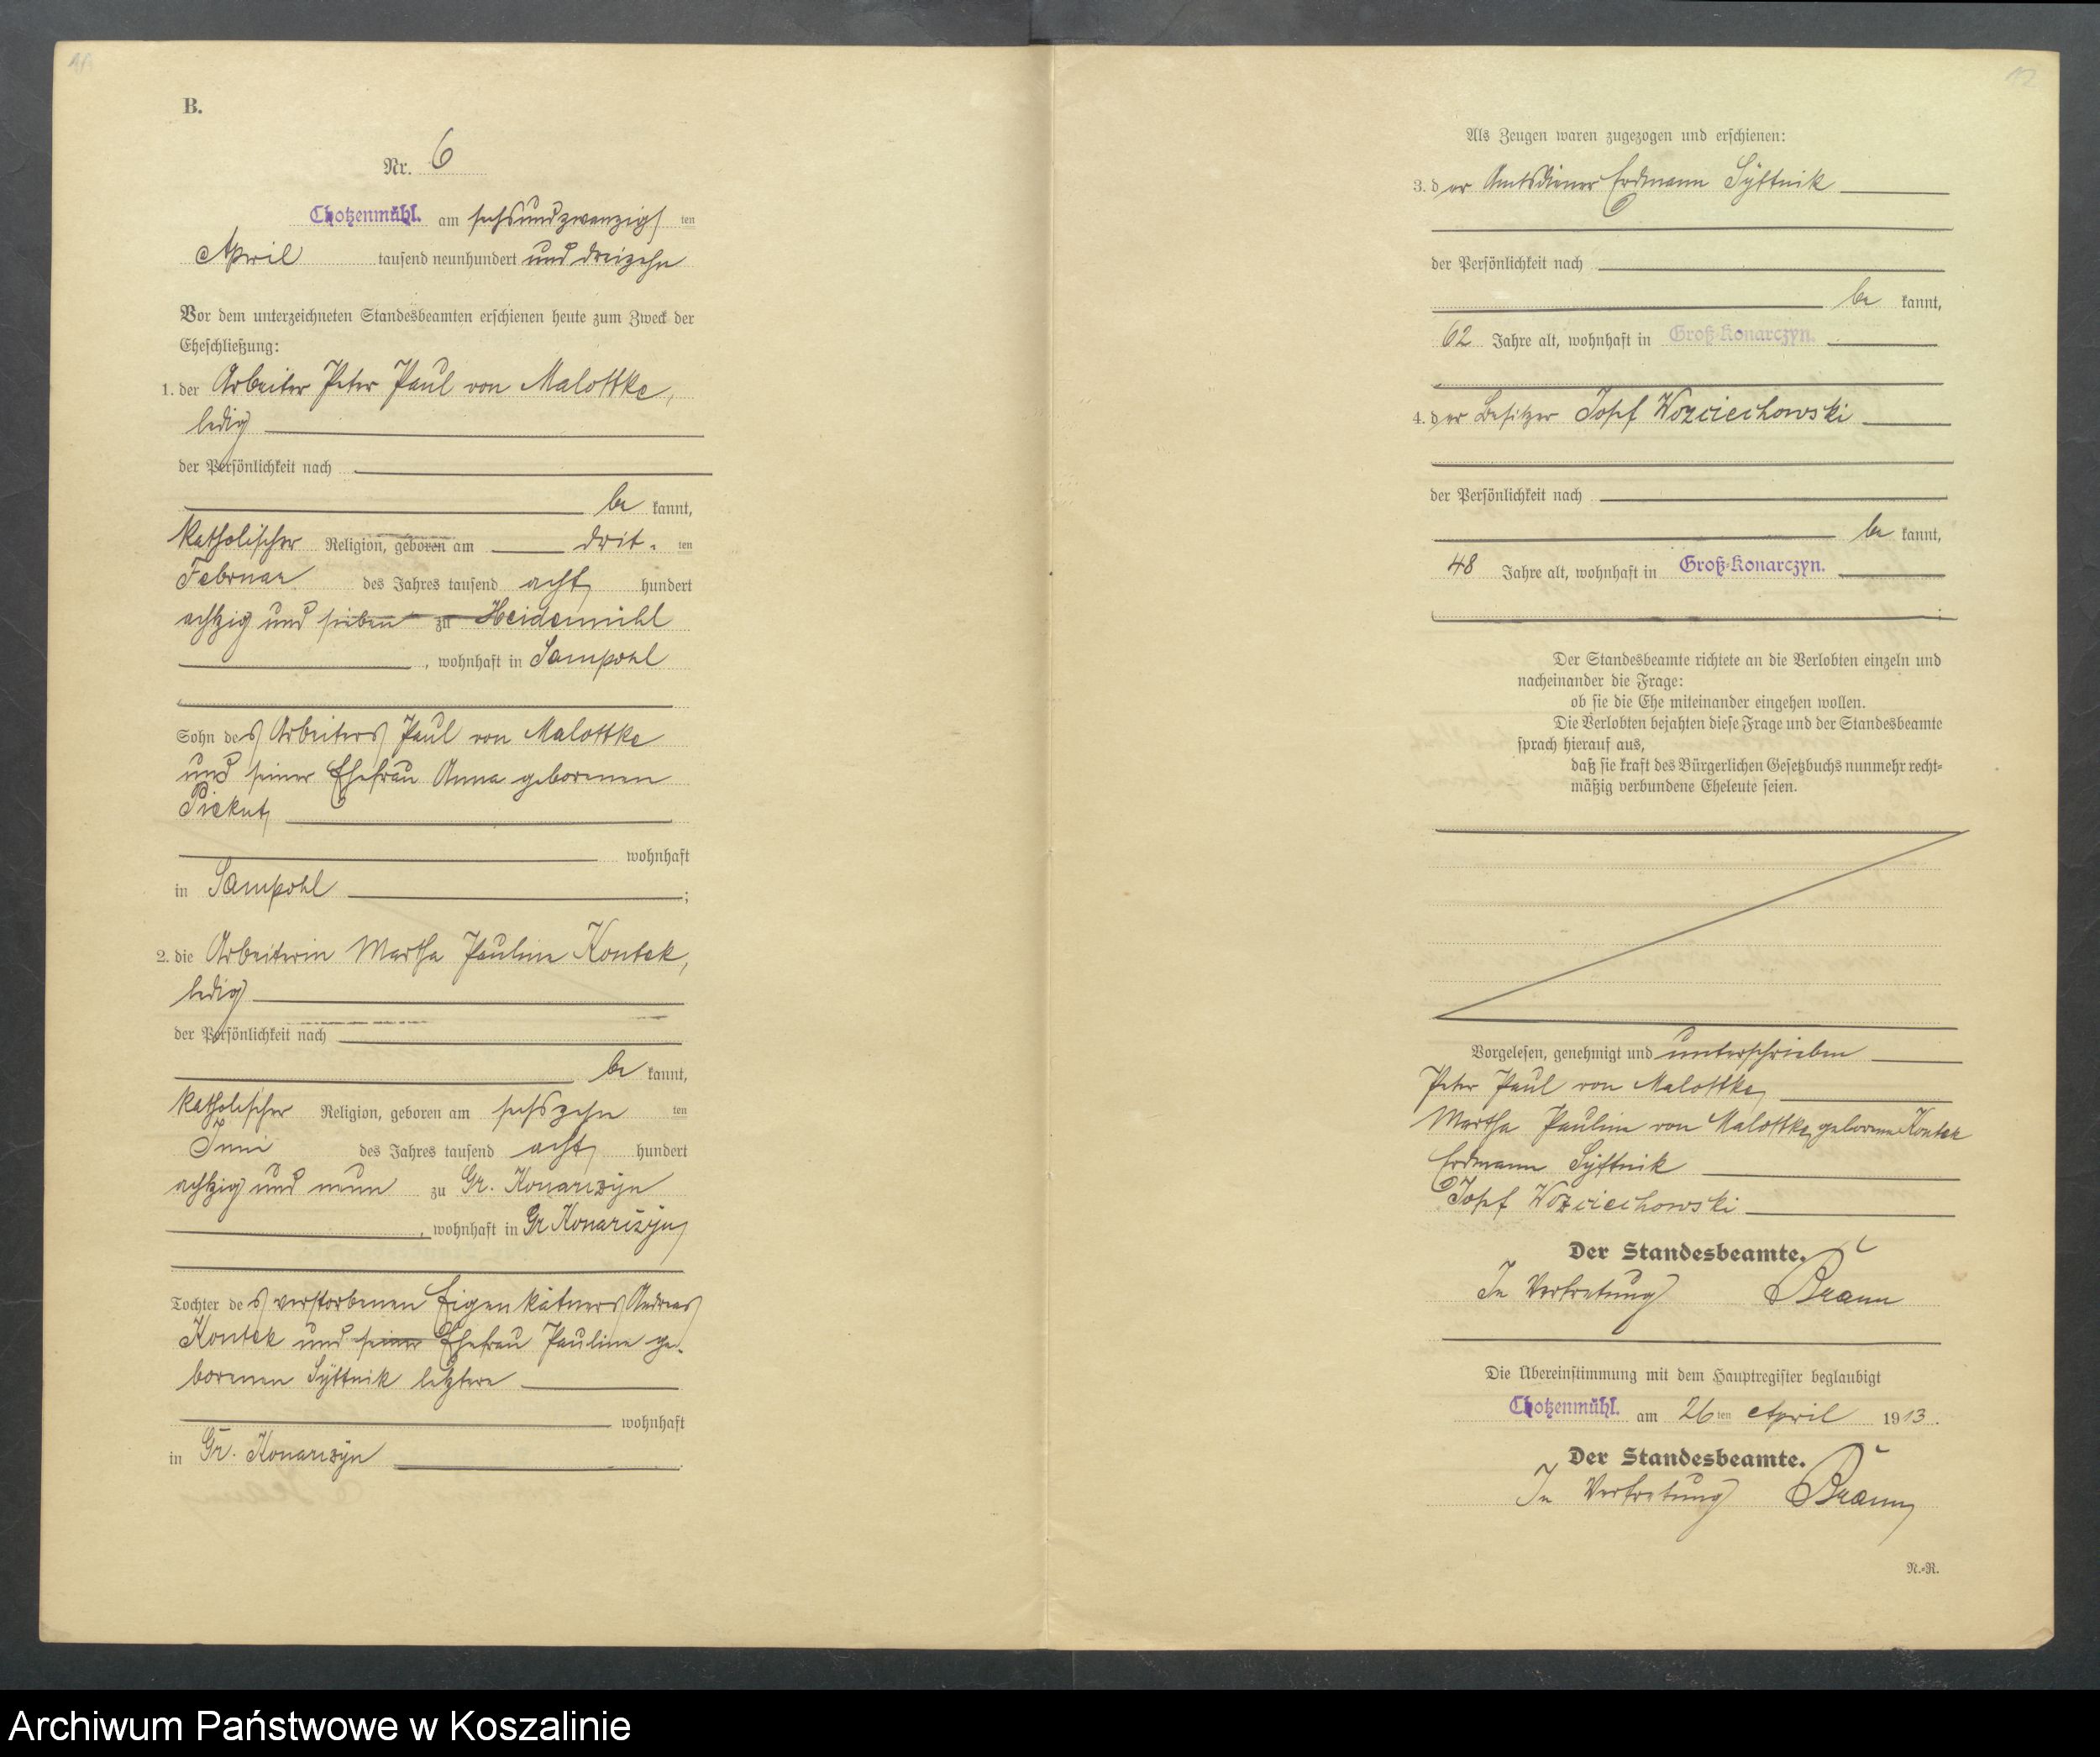 B.
Nr. 6
Chotzenmühl. am sechsundzwanzigs ten
April tausend neunhundert und dreizehn
Vor dem unterzeichneten Standesbeamten erschienen heute zum Zweck der
Eheschließung:
1. der Arbeiter Peter Paul von Malottke,
ledig
der Persönlichkeit nach
be kannt,
katholischer Religion, geboren am drit- ten
Februar des Jahres tausend acht hundert
achtzig und sieben zu Heidemühl
, wohnhaft in Sampohl
Sohn des Arbeiters Paul von Malottke
und seiner Ehefrau Anna geborenen
Piekut
wohnhaft
in Sampohl ;
2. die Arbeiterin Martha Pauline Kontek,
ledig
der Persönlichkeit nach
be kannt,
katholischer Religion, geboren am sechszehn ten
Juni des Jahres tausend acht hundert
achtzig und neun zu Gr. Konarczyn
, wohnhaft in Gr Konarczyn
Tochter des verstorbenen Eigenkätners Andreas
Kontek und seiner Ehefrau Pauline ge-
borenen Syttnik letztere
wohnhaft
in Gr. Konarczyn
Als Zeugen waren zugezogen und erschienen:
3. der Amtsdiener Erdmann Syttnik
der Persönlichkeit nach
be kannt,
62 Jahre alt, wohnhaft in Groß-Konarczyn.
4. der Besitzer Josef Wozciechowski
der Persönlichkeit nach
be kannt,
48 Jahre alt, wohnhaft in Groß-Konarczyn.
Der Standesbeamte richtete an die Verlobten einzeln und
nacheinander die Frage:
ob sie die Ehe miteinander eingehen wollen.
Die Verlobten bejahten diese Frage und der Standesbeamte
sprach hierauf aus,
daß sie kraft des Bürgerlichen Gesetzbuchs nunmehr recht-
mäßig verbundene Eheleute seien.
Vorgelesen, genehmigt und unterschrieben
Peter Paul von Malottke
Martha Pauline von Malottke geborene Kontek
Erdmann Syttnik
Josef Wozciechowski
Der Standesbeamte.
In Vertretung Braun
Die Übereinstimmung mit dem Hauptregister beglaubigt
Chotzenmühl. am 26 ten April 1913.
Der Standesbeamte.
In Vertretung Braun
N.-R.
Archiwum Państwowe w Koszalinie